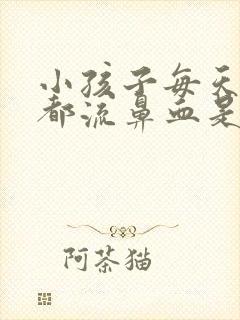 小孩子每天
都流鼻血是
阿茶猫